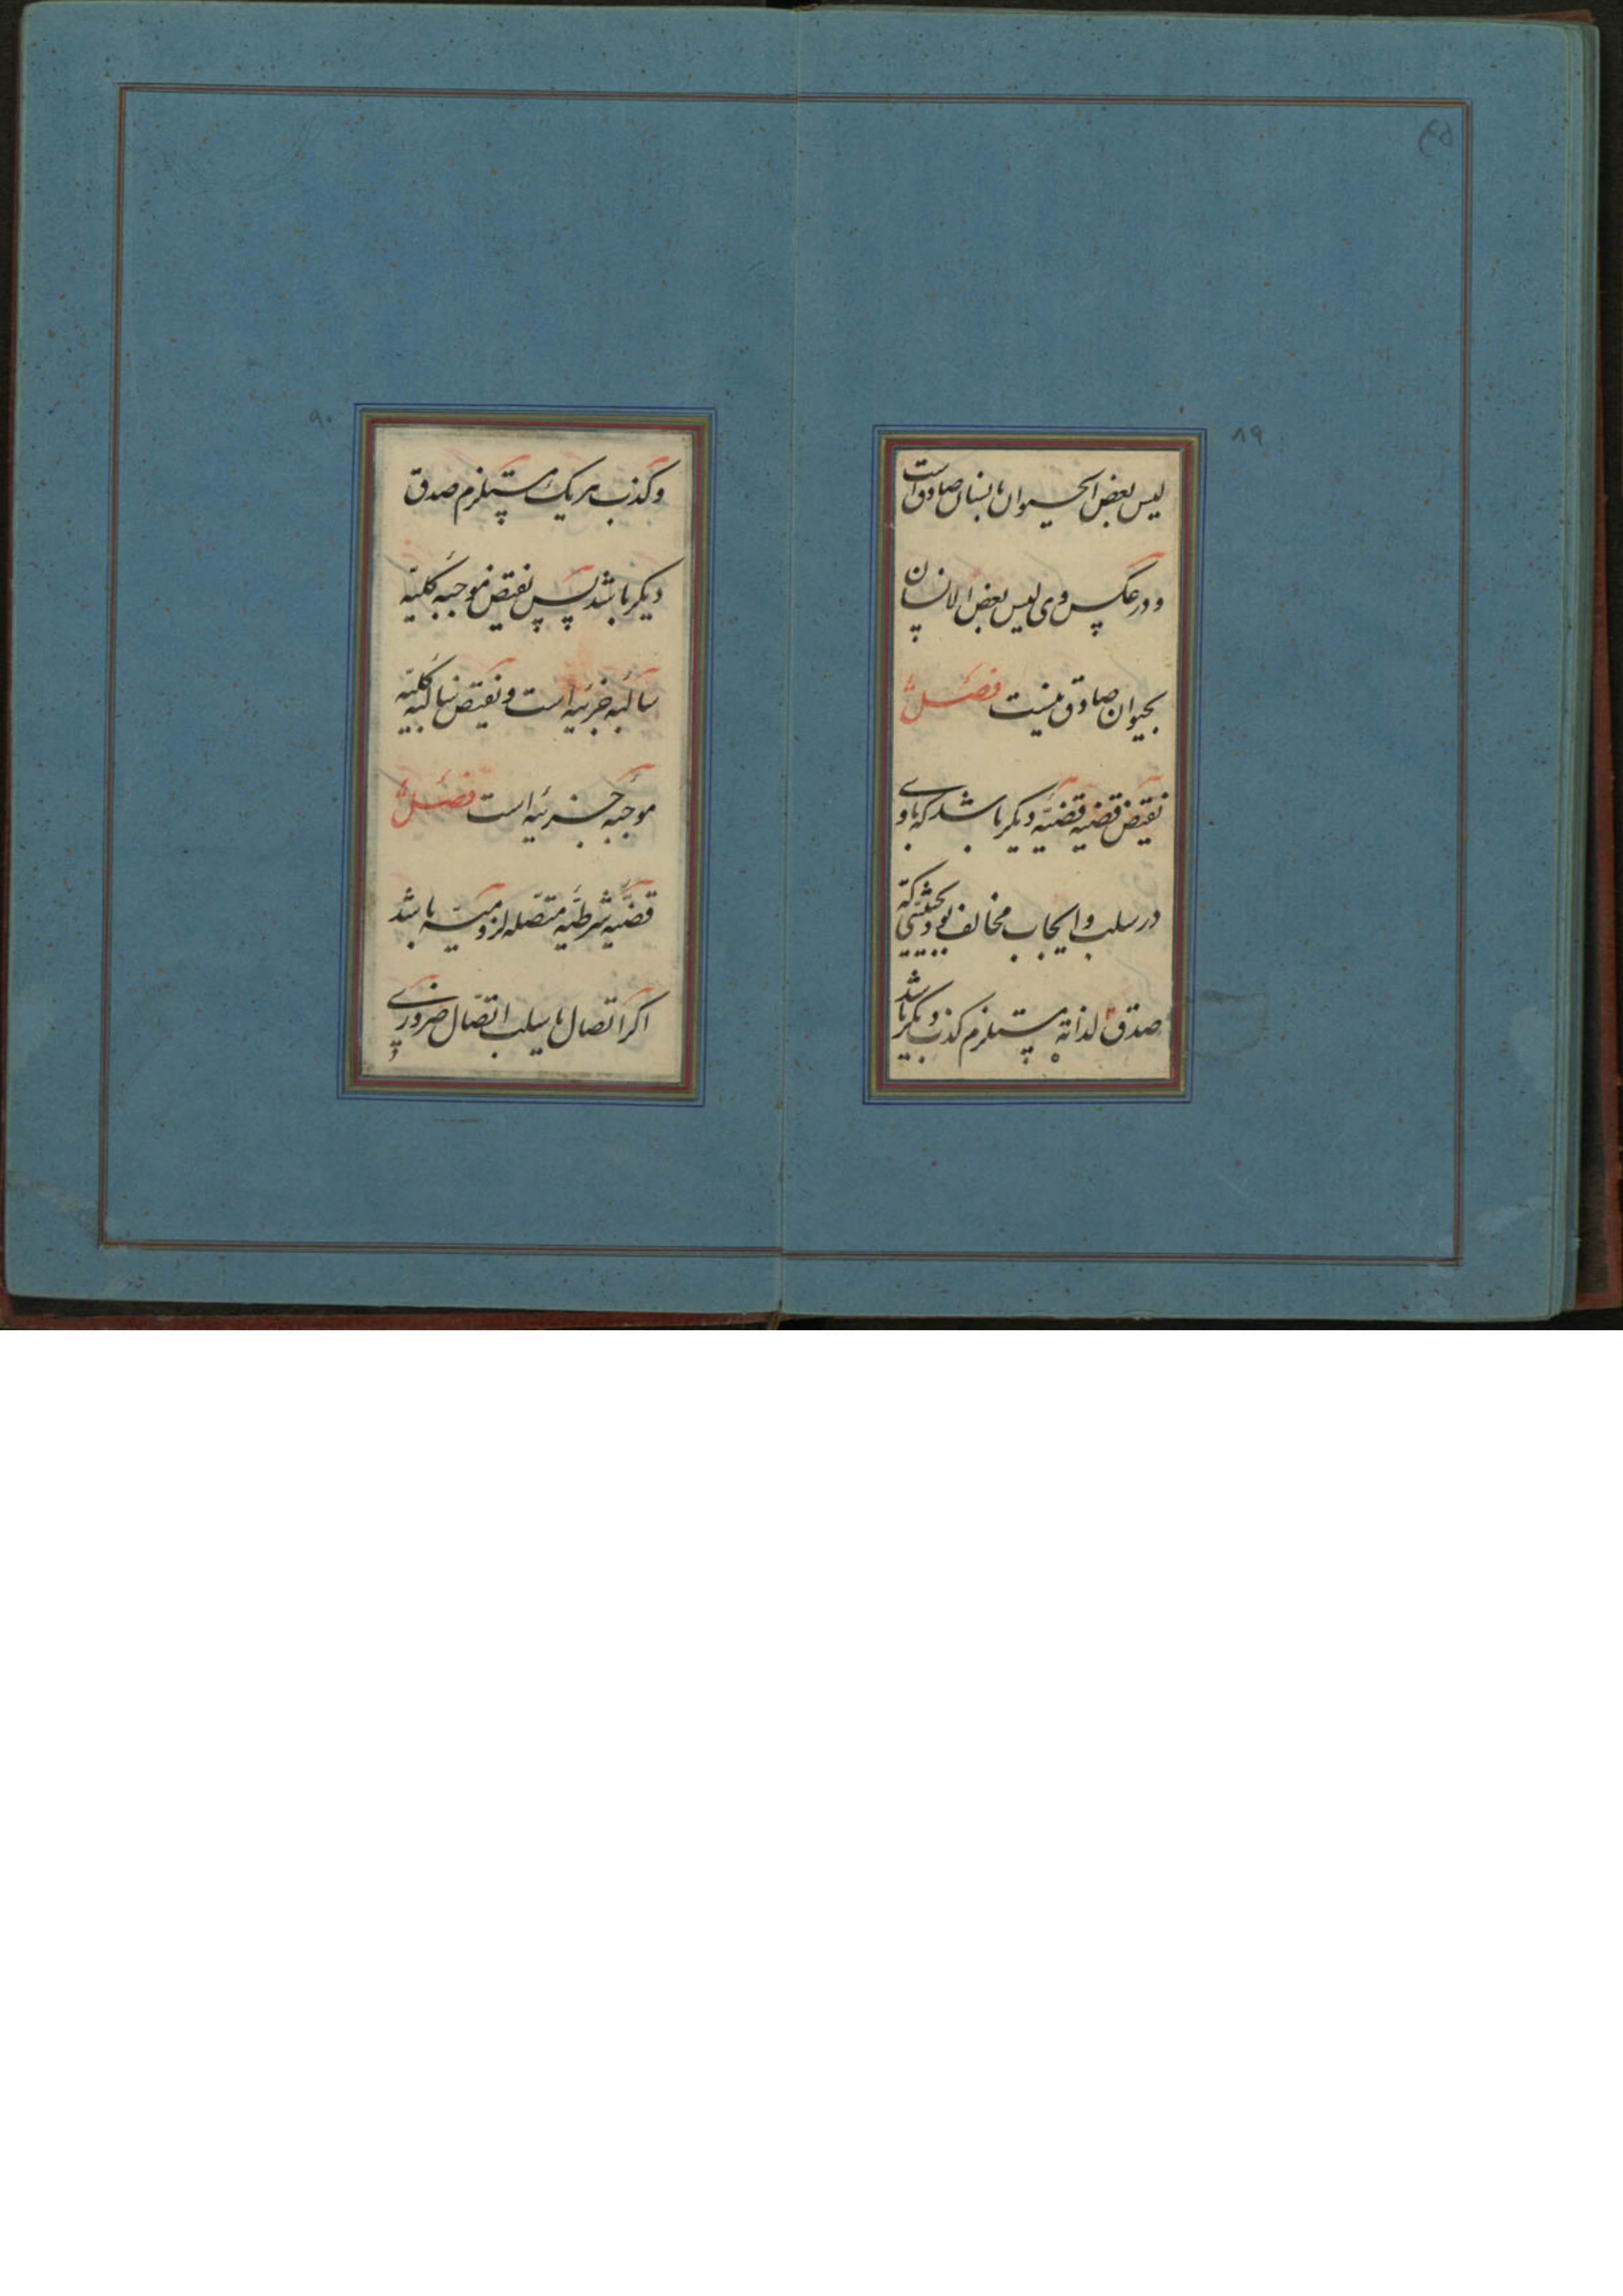 ۴۵
۸۹
لیس بعض الحیوان بانسان صادق است
و در عکس وی لیس بعض الانسان
بحیوان صادق نیست فصل
نقیض قضیه قضیه دیگر باشد که با وی
در سلب و ایجاب مخالف بود بحیثیتی که
صدق لذاته مستلزم کذب دیگر باشد
۹۰
و کذب هر یک مستلزم صدق
دیگر باشد پس نقیض موجبه کلیه
سالبه جزئیه است و نقیض سالبه کلیه
موجبه جزئیه است فصل
قضیه شرطیه متصله لزومیه باشد
اگر اتصال یا سلب اتصال ضروری